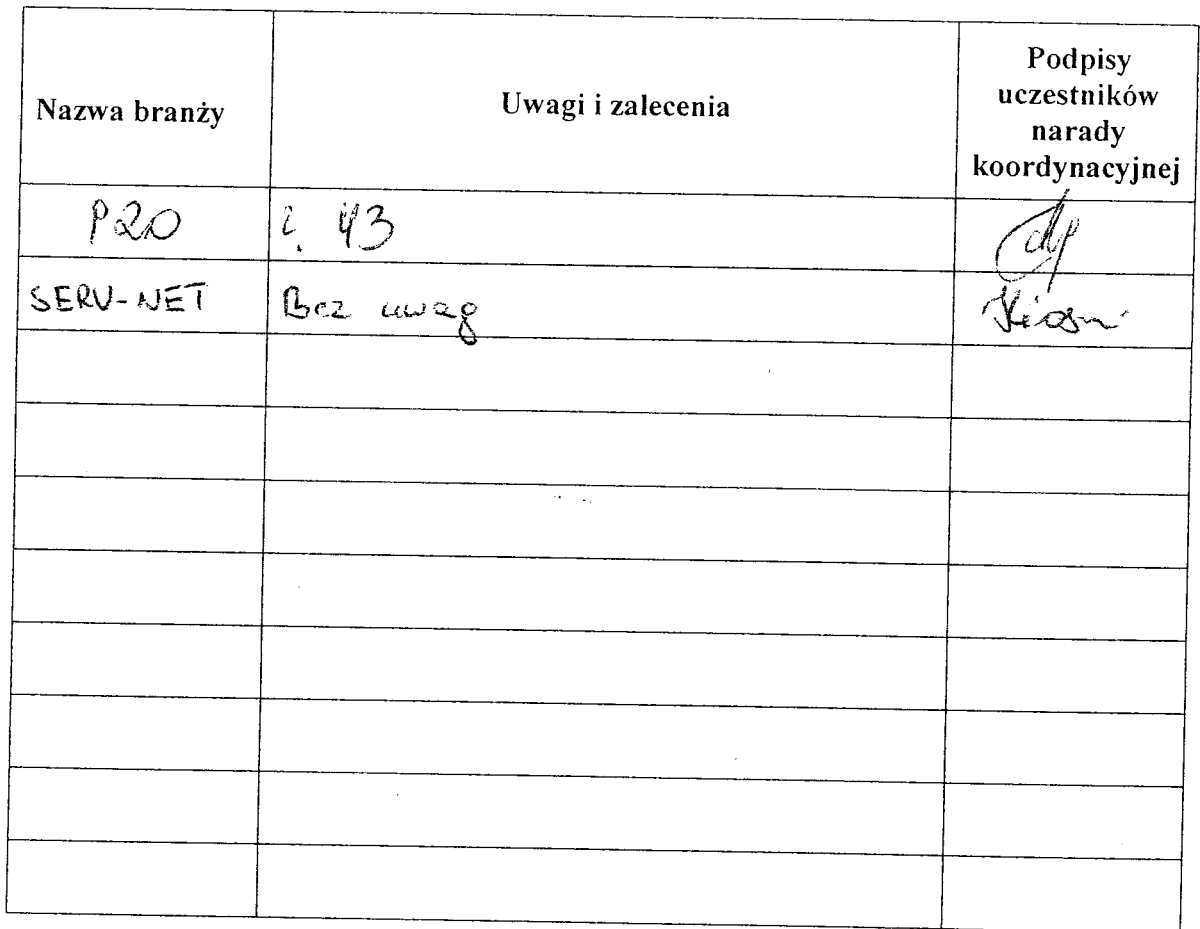 Nazwa branży
Uwagi i zalecenia
Podpisy
uczestników
narady
koordynacyjnej
P20
43
SERV-NET
Bez uwag